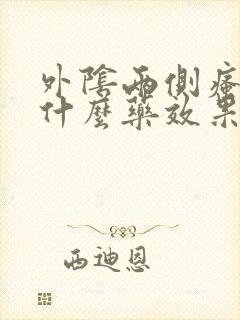 外陰兩側瘙
什麼藥效果
西迪恩